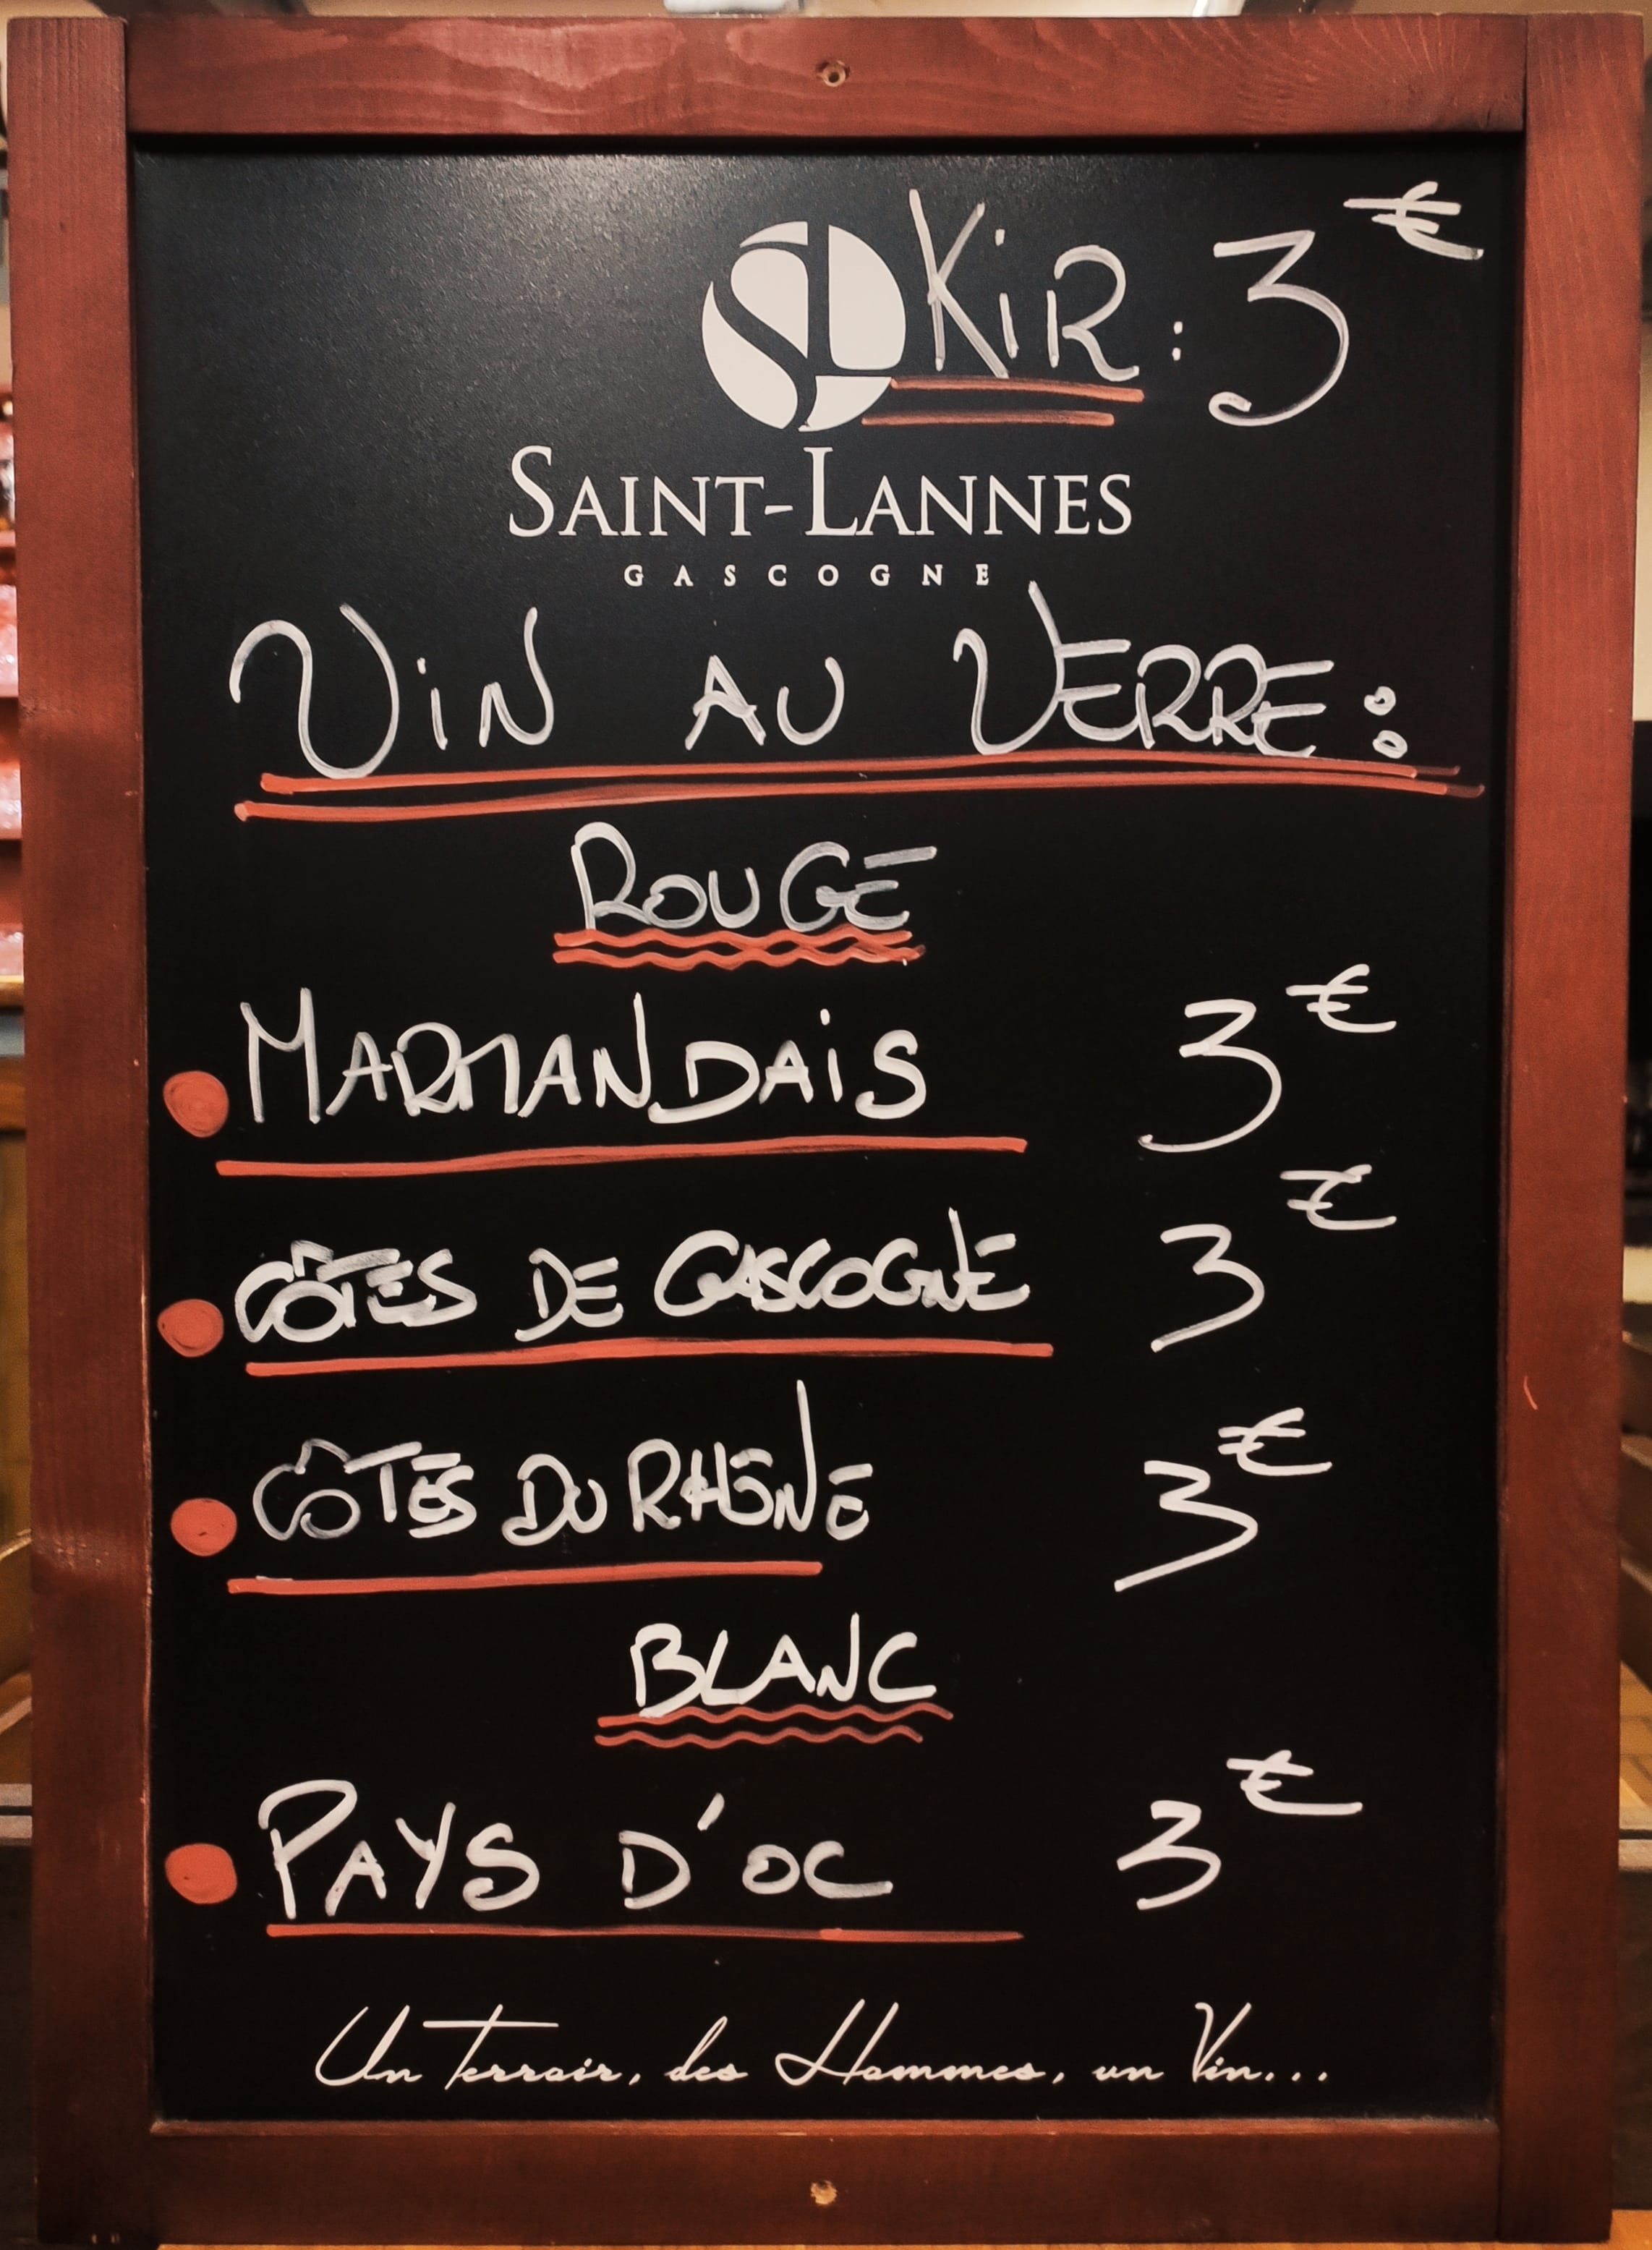 Kir : 3€
SL
SAINT-LANNES
GASCOGNE
ViN AU VERRE :
ROUGE
MARMANDAiS 3€
CÔTES DE GASCOGNE 3€
CÔTES DU RHÔNE 3€
BLANC
PAYS D'OC 3€
Un Terroir, des Hommes, un Vin...